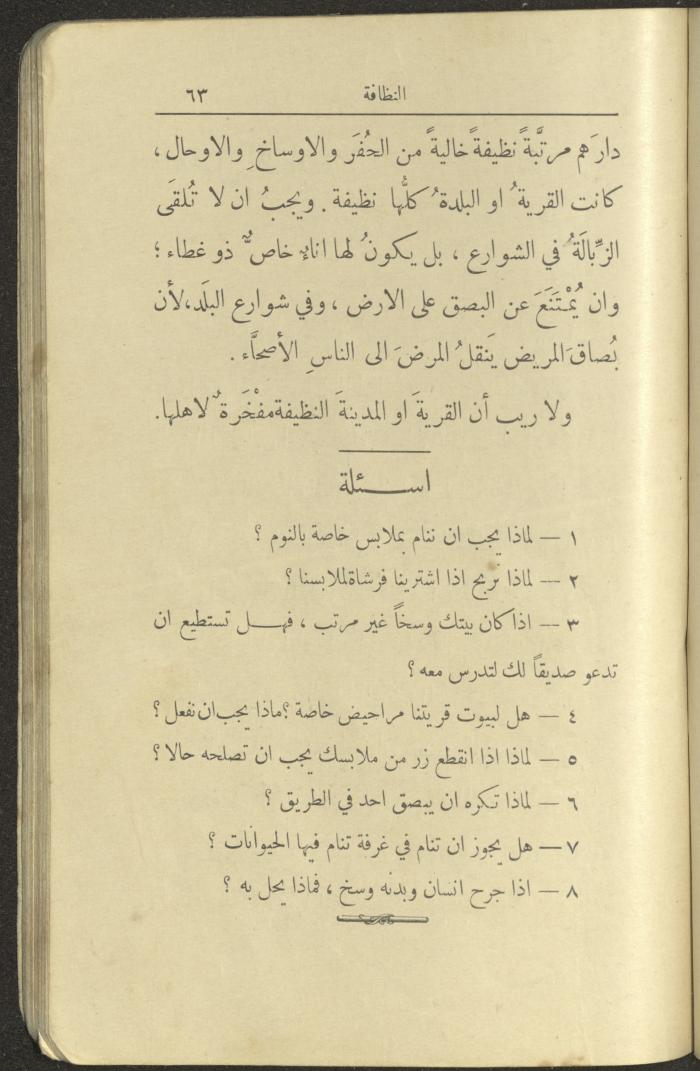 النظافة ٦٣
دارَهم مرتَّبةً نظيفةً خاليةً من الحُفَر والاوساخِ والاوحال ،
كانت القريةُ او البلدةُ كلُّها نظيفة . ويجبُ ان لا تُلقَى
الزِّبالَةُ في الشوارع ، بل يكونُ لها اناءٌ خاصٌّ ذو غطاء ؛
وان يُمْتَنَعَ عن البصق على الارض ، وفي شوارع البلَد، لأن
بُصاقَ المريض يَنقلُ المرضَ الى الناسِ الأصحَّاء .
ولا ريب أن القريةَ او المدينةَ النظيفة مفْخَرةٌ لاهلها.
اســئلة
١ — لماذا يجب ان ننام بملابس خاصة بالنوم ؟
٢ — لماذا نربح اذا اشترينا فرشاة لملابسنا ؟
٣ — اذا كان بيتك وسخاً غير مرتب ، فهــل تستطيع ان
تدعو صديقاً لك لتدرس معه ؟
٤ — هل لبيوت قريتنا مراحيض خاصة ؟ ماذا يجب ان نفعل ؟
٥ — لماذا اذا انقطع زر من ملابسك يجب ان تصلحه حالا ؟
٦ — لماذا تكره ان يبصق احد في الطريق ؟
٧ — هل يجوز ان تنام في غرفة تنام فيها الحيوانات ؟
٨ — اذا جرح انسان وبدنه وسخ ، فماذا يحل به ؟